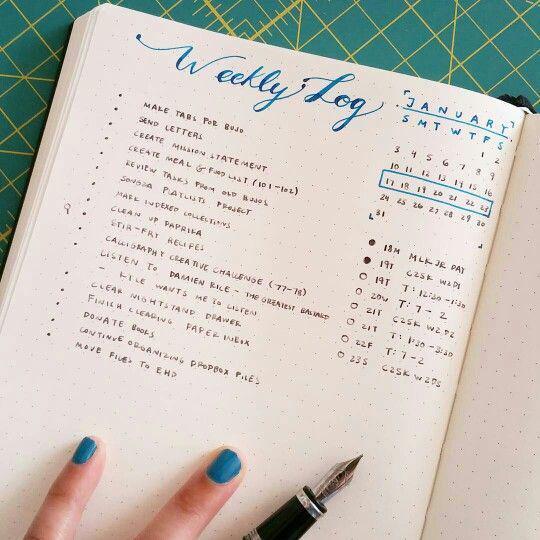 Weekly Log
MAKE TABS FOR BUJO
SEND LETTERS
CREATE MISSION STATEMENT
CREATE MEAL & FOOD LIST (101-102)
REVIEW TASKS FROM OLD BUJOS
SONGZA PLAYLISTS PROJECT
MARK INDEXED COLLECTIONS
CLEAN UP PAPRIKA
STIR-FRY RECIPES
CALLIGRAPHY CREATIVE CHALLENGE (77-78)
LISTEN TO DAMIEN RICE - THE GREATEST BASTARD
- KYLE WANTS ME TO LISTEN
CLEAR NIGHTSTAND DRAWER
FINISH CLEARING PAPER INBOX
DONATE BOOKS
CONTINUE ORGANIZING DROPBOX FILES
MOVE FILES TO EHD
JANUARY
S M T W T F S
1 2
3 4 5 6 7 8 9
10 11 12 13 14 15 16
17 18 19 20 21 22 23
24 25 26 27 28 29 30
31
18M MLK JR DAY
19T C25K W2D1
19T T: 12:30-1:30
20W T: 7-2
21T C25K W2D2
21T T: 1:30-3:30
22F T: 7-2
23S C25K W2D3